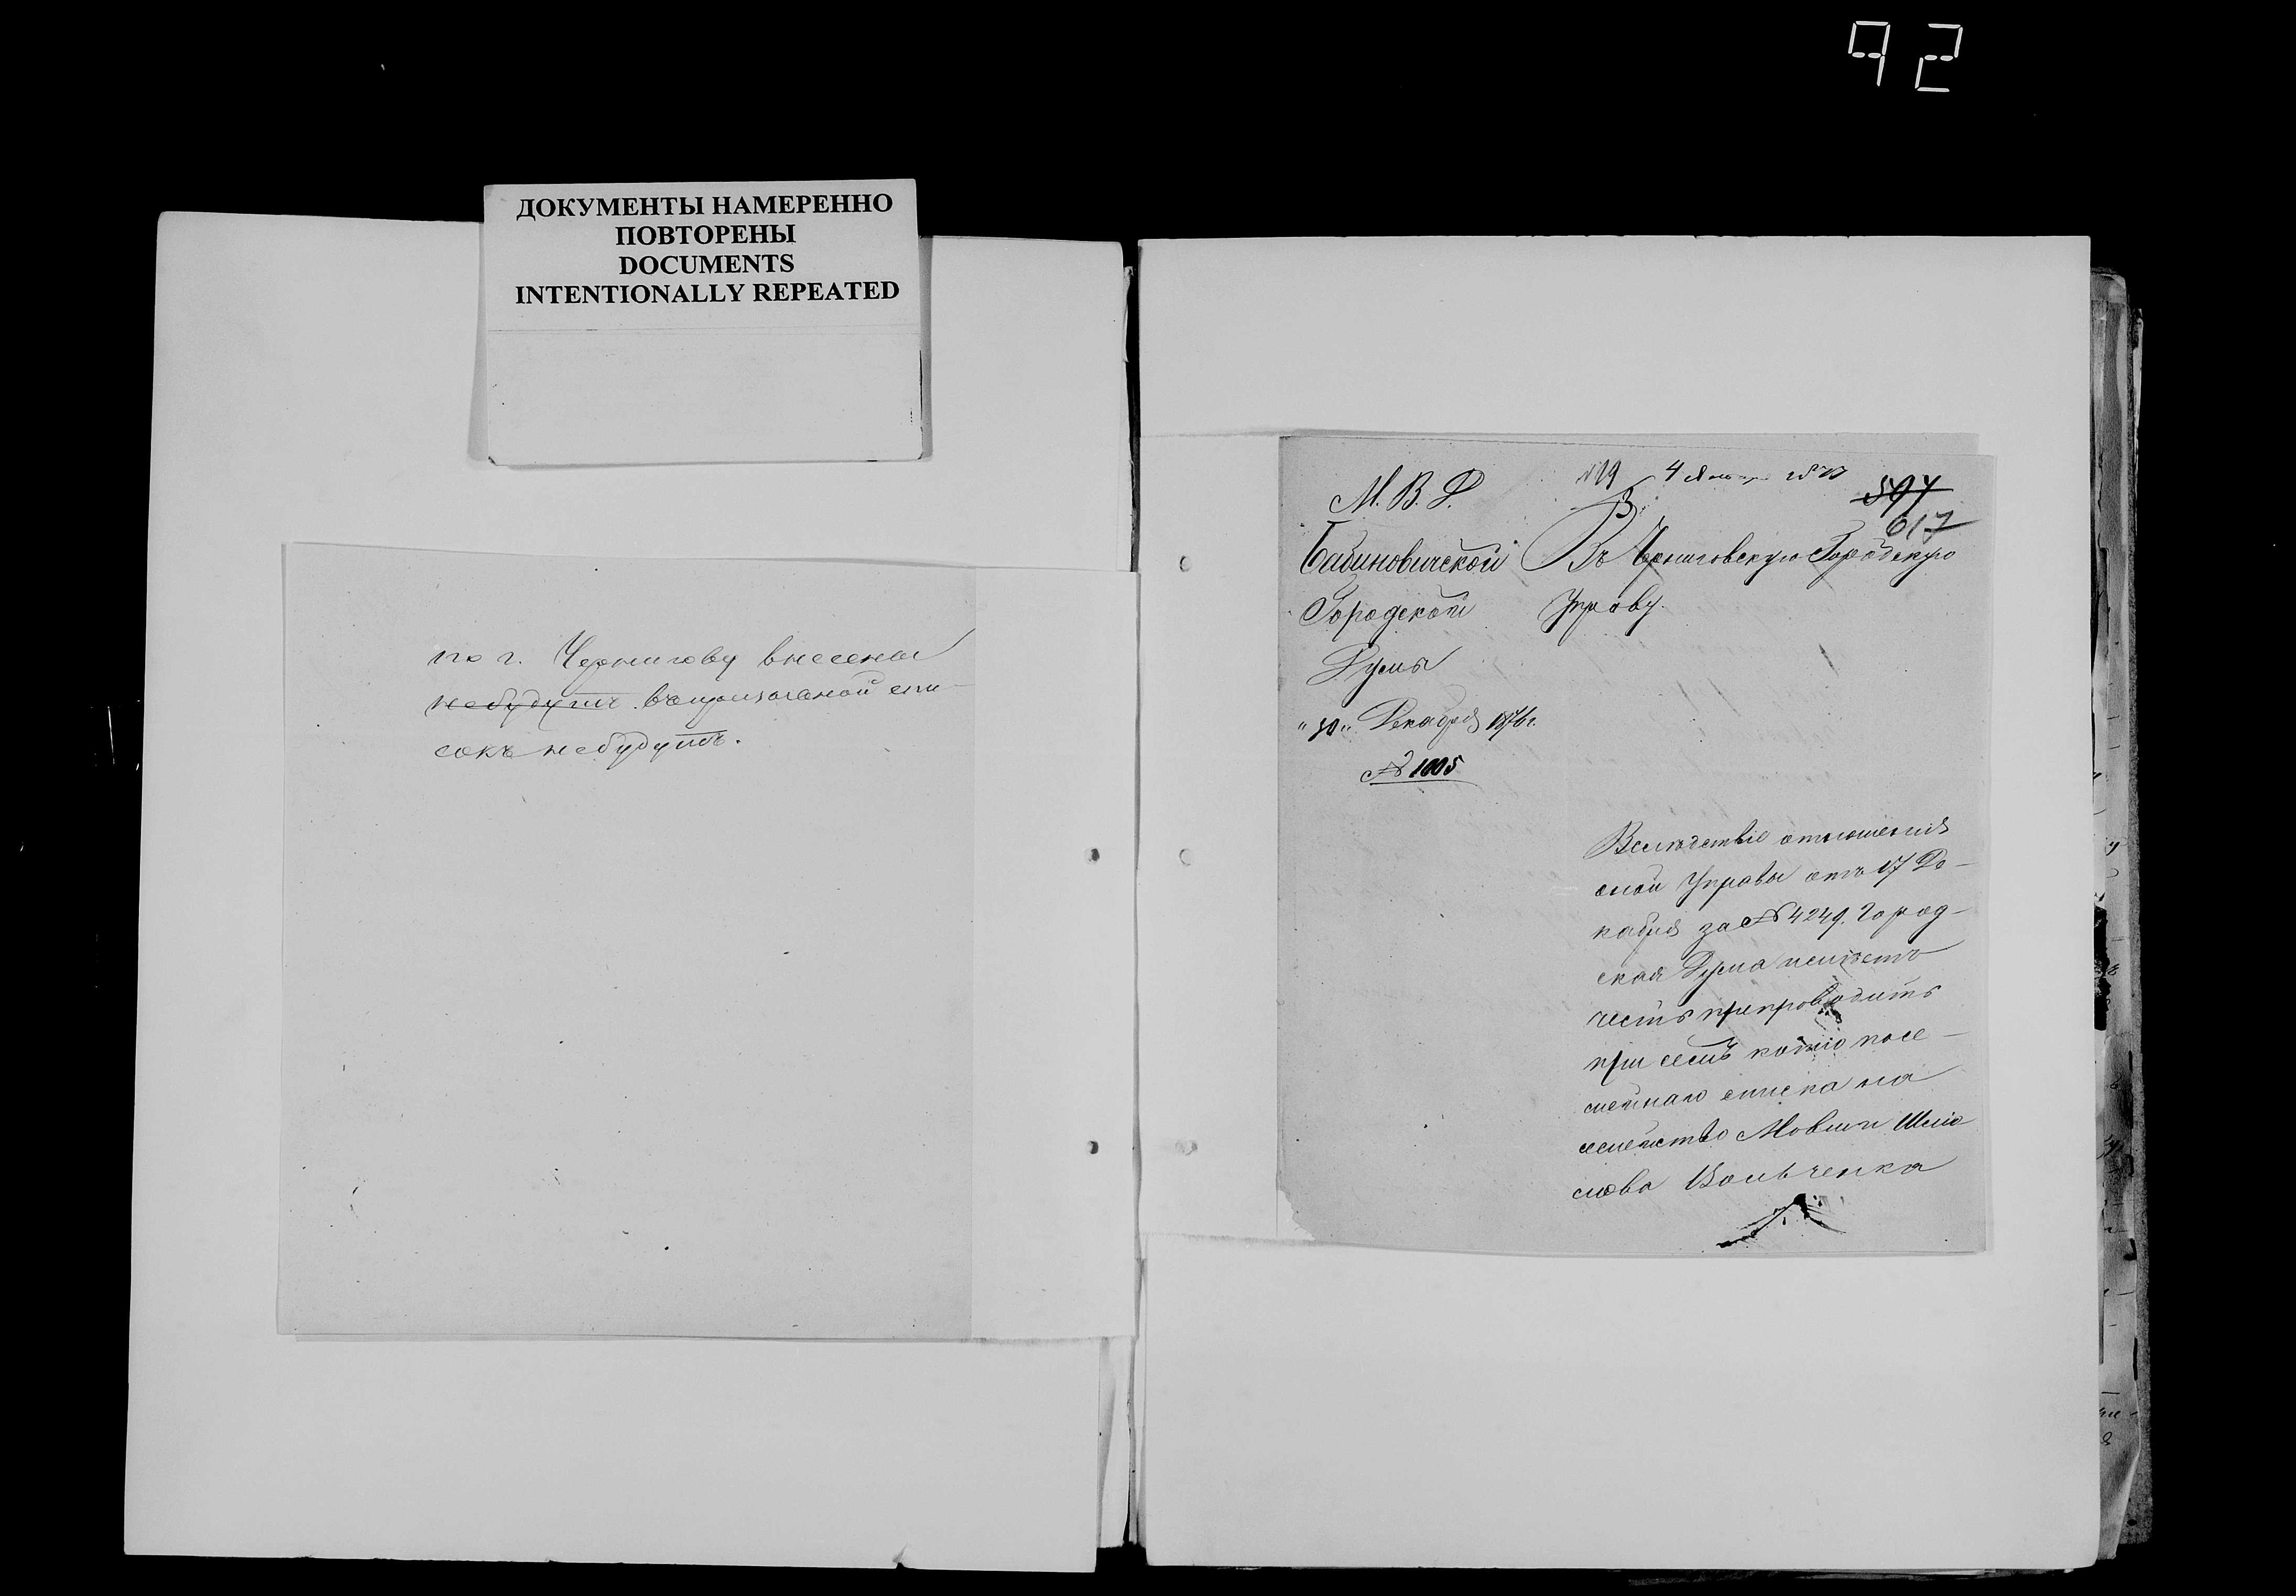 92
ДОКУМЕНТЫ НАМЕРЕННО
ПОВТОРЕНЫ
DOCUMENTS
INTENTIONALLY REPEATED
по г. Чернигову внесены
небудутъ въ призывной спи-
сокъ небудутъ.
№ 19 4 Января 1877
597
617
М. В. Д.
Бабиновичской
Городской
Думы
"30" Декабря 1876 г.
№ 1005
Въ Черниговскую Городскую
Управу.
Вслѣдствіе отношенія
оной Управы отъ 17 Де-
кабря за № 4249. Город-
ская Дума имѣетъ
честь препроводить
при семъ копію посе-
мейнаго списка на
семейство Мовши Шлио
мова Вольченка